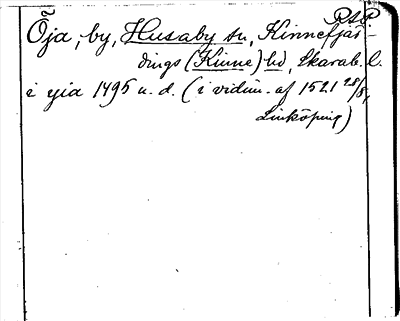 RAP
Öja, by, Husaby sn, Kinnefjär-
dings (Kinne) hd, Skarab. l.
i yia 1495 u. d. (i vidim. af 1521 28/8,
Linköping)